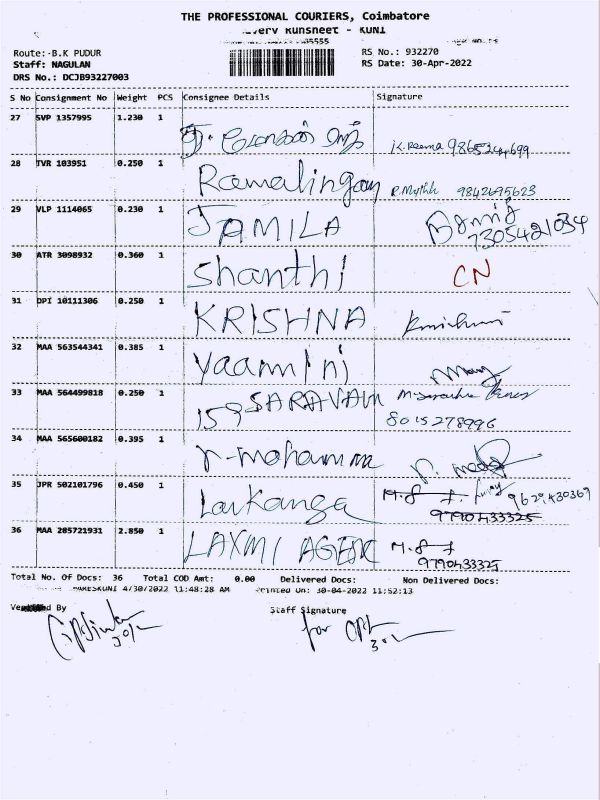 THE PROFESSIONAL COURIERS, Coimbatore
Runsheet - KUNI
Route:-B.K PUDUR
RS No.: 932270
Staff: NAGULAN
RS Date: 30-Apr-2022
DRS No.: DCJB93227003
S No Consignment No Weight PCS Consignee Details Signature
27 SVP 1357995 1.230 1 K. Reema
28 TVR 103951 0.250 1 Ramalingam 9842695623
29 VLP 1114065 0.230 1 JAMILA
7305421034
30 ATR 3098932 0.360 1 Shanthi CN
31 DPI 10111306 0.250 1 KRISHNA
32 MAA 563544341 0.385 1 Yaamini
33 MAA 564499818 0.250 1 159 SARAVAN
8015278996
34 MAA 565600182 0.395 1 r-mohamma
35 JPR 502101796 0.450 1 9629430369
9790433325
36 MAA 285721931 2.850 1 LAXMI AGENC
9790433325
Total No. Of Docs: 36 Total COD Amt: 0.00 Delivered Docs: Non Delivered Docs:
4/30/2022 11:48:28 AM Printed On: 30-04-2022 11:52:13
By Staff Signature
for